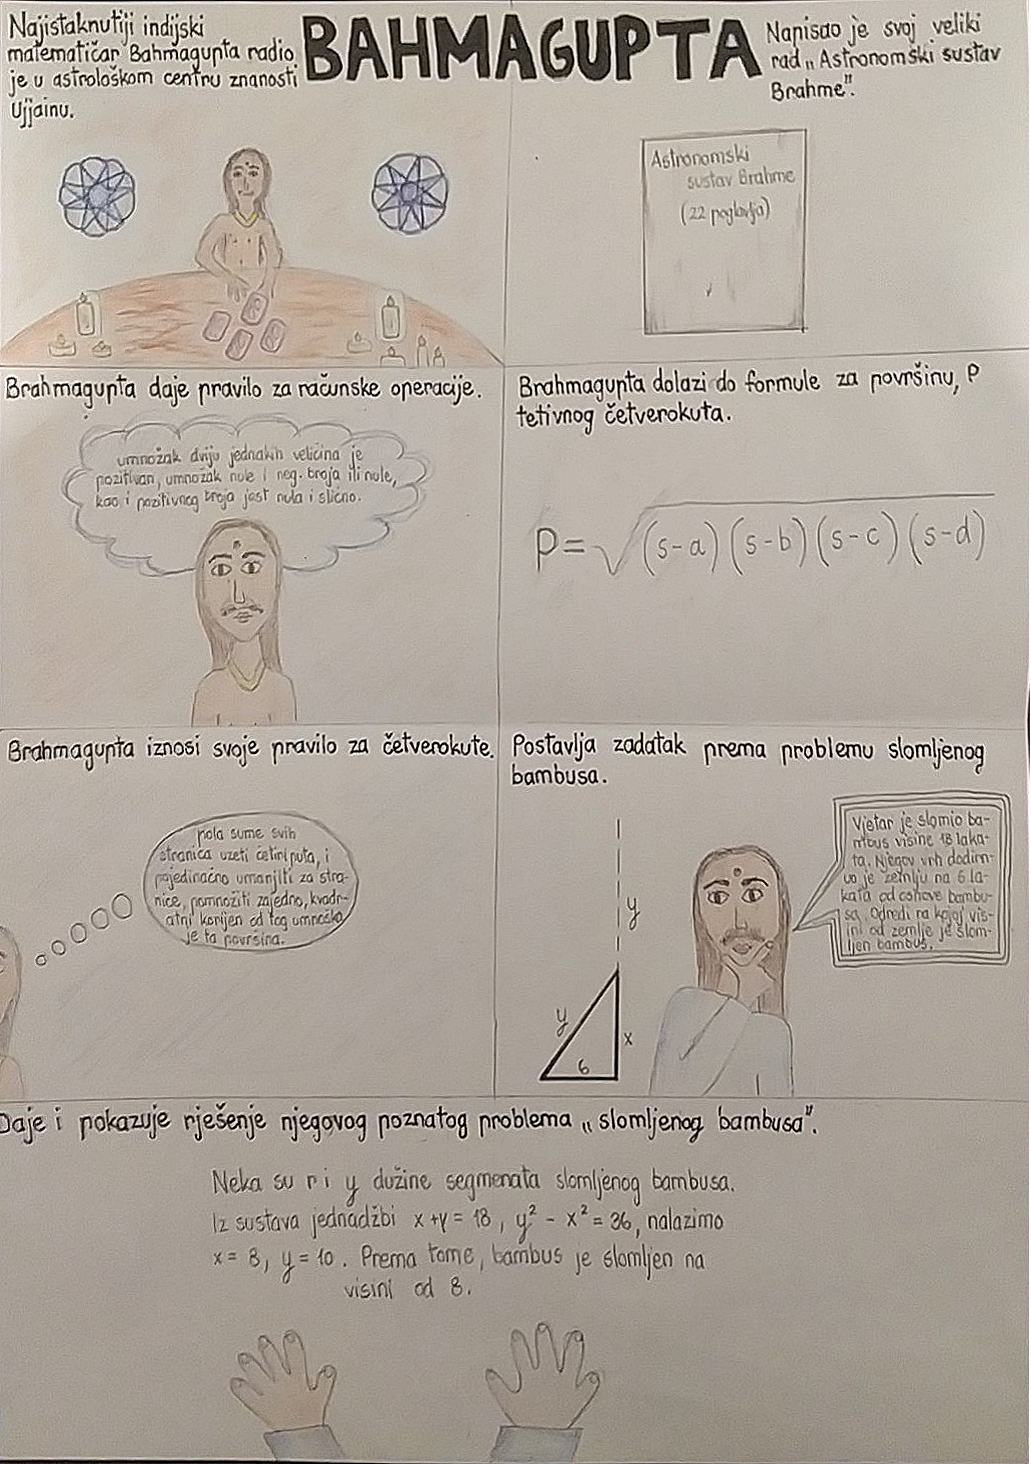 Najistaknutiji indijski
matematičar Bahmagupta radio
je u astrološkom centru znanosti
Ujjainu.
BAHMAGUPTA
Napisao je svoj veliki
rad „Astronomski sustav
Brahme".
Astronomski
sustav Brahme
(22 poglavlja)
Brahmagupta daje pravilo za računske operacije.
umnožak dviju jednakih veličina je
pozitivan, umnožak nule i neg. broja ili nule,
kao i pozitivnog broja jest nula i slično.
Brahmagupta dolazi do formule za površinu, P
tetivnog četverokuta.
P = √(s-a)(s-b)(s-c)(s-d)
Brahmagupta iznosi svoje pravilo za četverokute.
pola sume svih
stranica uzeti četiri puta, i
pojedinačno umanjiti za stra-
nice, pomnožiti zajedno, kvadr-
atni korijen od tog umnoška
je ta površina.
Postavlja zadatak prema problemu slomljenog
bambusa.
y
y
x
6
Vjetar je slomio ba-
mbus visine 18 laka-
ta. Njegov vrh dodirn-
uo je zemlju na 6 la-
kata od osnove bambu-
sa. Odredi na kojoj vis-
ini od zemlje je slom-
ljen bambus.
Daje i pokazuje rješenje njegovog poznatog problema „slomljenog bambusa".
Neka su r i y dužine segmenata slomljenog bambusa.
Iz sustava jednadžbi x+y = 18, y² - x² = 36, nalazimo
x = 8, y = 10. Prema tome, bambus je slomljen na
visini od 8.